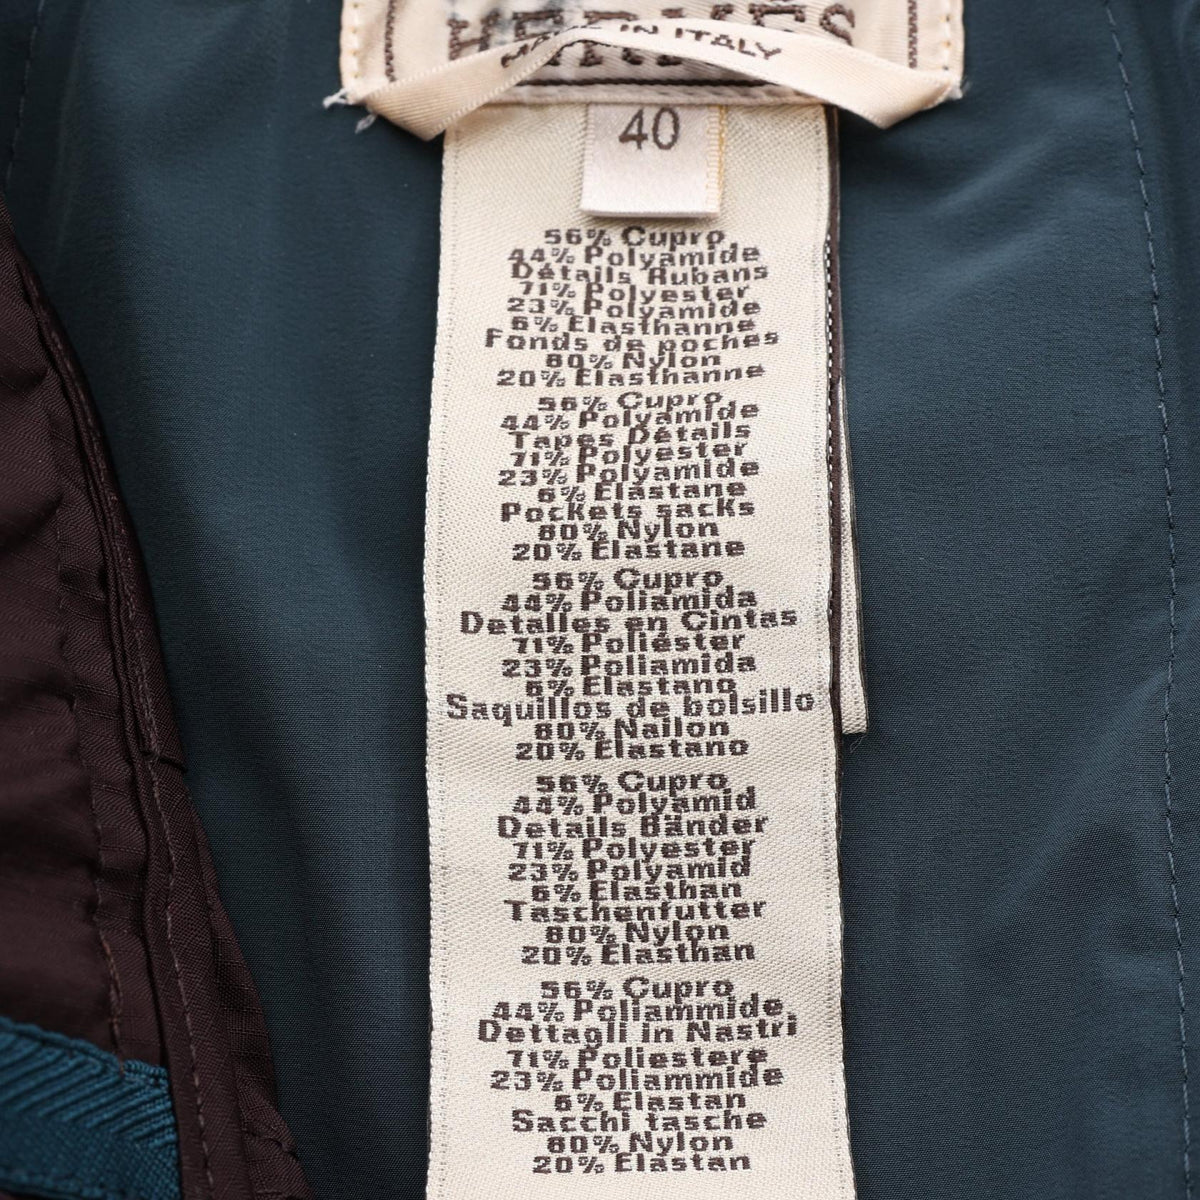 HERMES
MADE IN ITALY
40
56% Cupro
44% Polyamide
Détails Rubans
71% Polyester
23% Polyamide
6% Elasthanne
Fonds de poches
80% Nylon
20% Elasthanne
56% Cupro
44% Polyamide
Tapes Détails
71% Polyester
23% Polyamide
6% Elastane
Pockets sacks
80% Nylon
20% Elastane
56% Cupro
44% Poliamida
Detalles en Cintas
71% Poliéster
23% Poliamida
6% Elastano
Saquillos de bolsillo
80% Nailon
20% Elastano
56% Cupro
44% Polyamid
Details Bänder
71% Polyester
23% Polyamid
6% Elasthan
Taschenfutter
80% Nylon
20% Elasthan
56% Cupro
44% Poliammide
Dettagli in Nastri
71% Poliestere
23% Poliammide
6% Elastan
Sacchi tasche
80% Nylon
20% Elastan